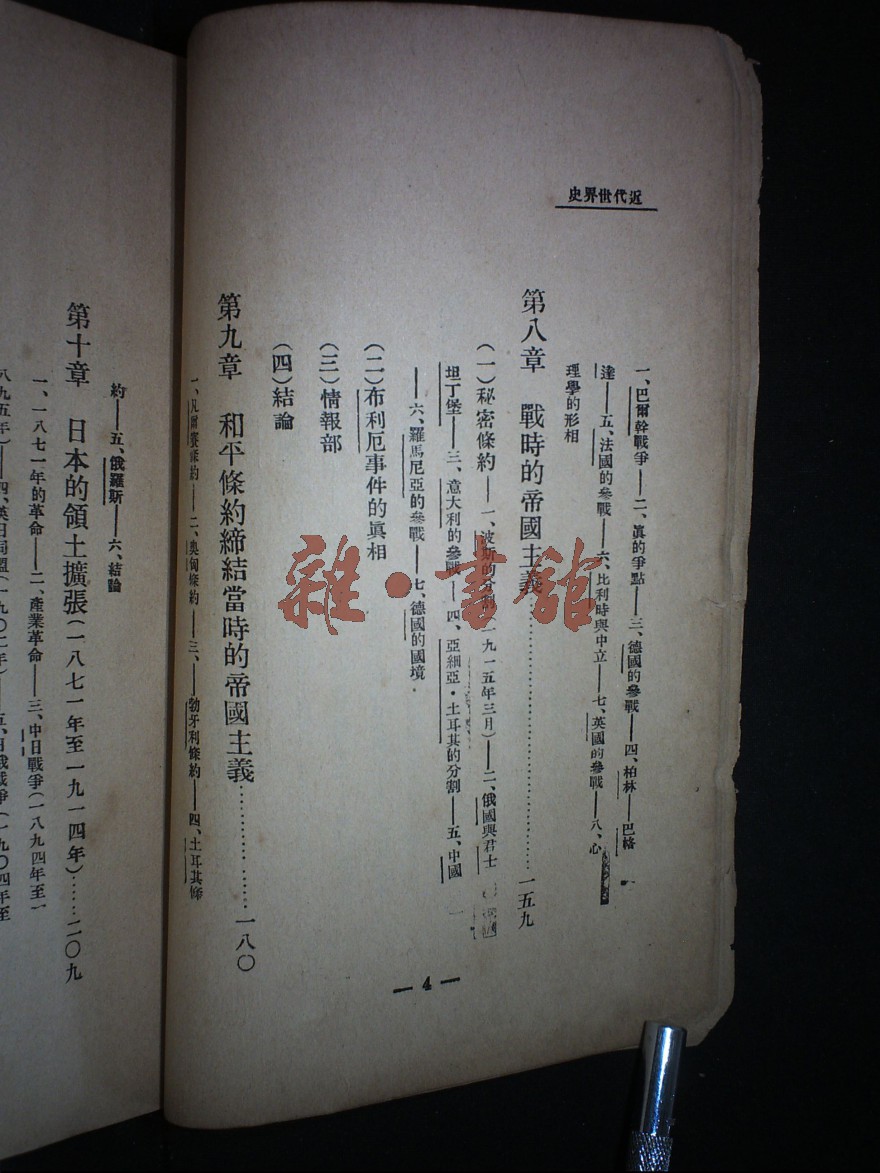 史界世代近
一、巴爾幹戰爭——二、眞的爭點——三、德國的參戰——四、柏林——巴格
達——五、法國的參戰——六、比利時與中立——七、英國的參戰——八、心
理學的形相
第八章 戰時的帝國主義……一五九
(一)秘密條約——一、波斯的分割(一九一五年三月)——二、俄國與君士
坦丁堡——三、意大利的參戰——四、亞細亞·土耳其的分割——五、中國
——六、羅馬尼亞的參戰——七、德國的國境
(二)布利厄事件的眞相
(三)情報部
(四)結論
第九章 和平條約締結當時的帝國主義……一八〇
一、凡爾賽條約——二、奧匈條約——三、勃牙利條約——四、土耳其條
— 4 —
約——五、俄羅斯——六、結論
第十章 日本的領土擴張(一八七一年至一九一四年)……二〇九
一、一八七一年的革命——二、產業革命——三、中日戰爭(一八九四年至一
八九五年)——四、英日同盟(一九〇二年)——五、日俄戰爭(一九〇四年至
雜·書館